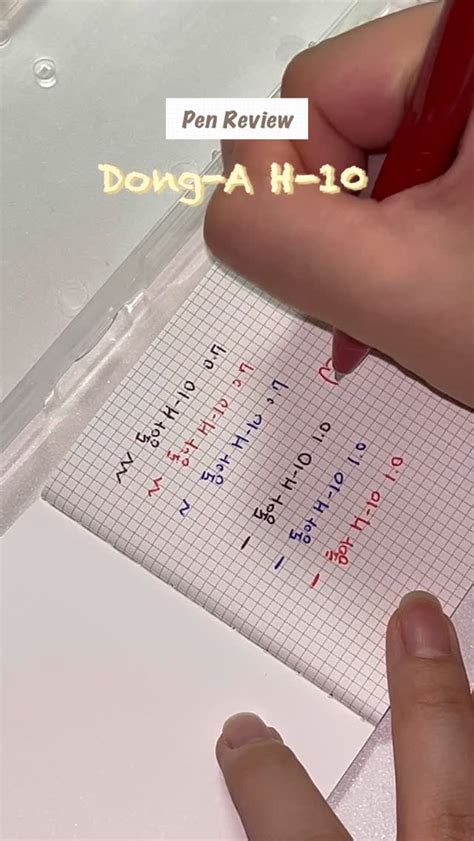 Pen Review
Dong-A H-10
동아 H-10 0.7
동아 H-10 0.7
동아 H-10 0.7
동아 H-10 1.0
동아 H-10 1.0
동아 H-10 1.0